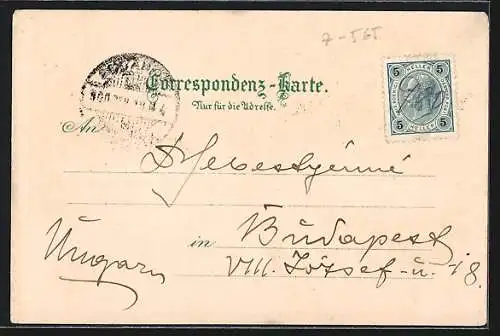 7-565
Correspondenz-Karte.
Nur für die Adresse.
5 HELLER 5
5 HELLER 5
An
Sebestyénné
in Budapest
Ungarn VIII. József-u. 18.